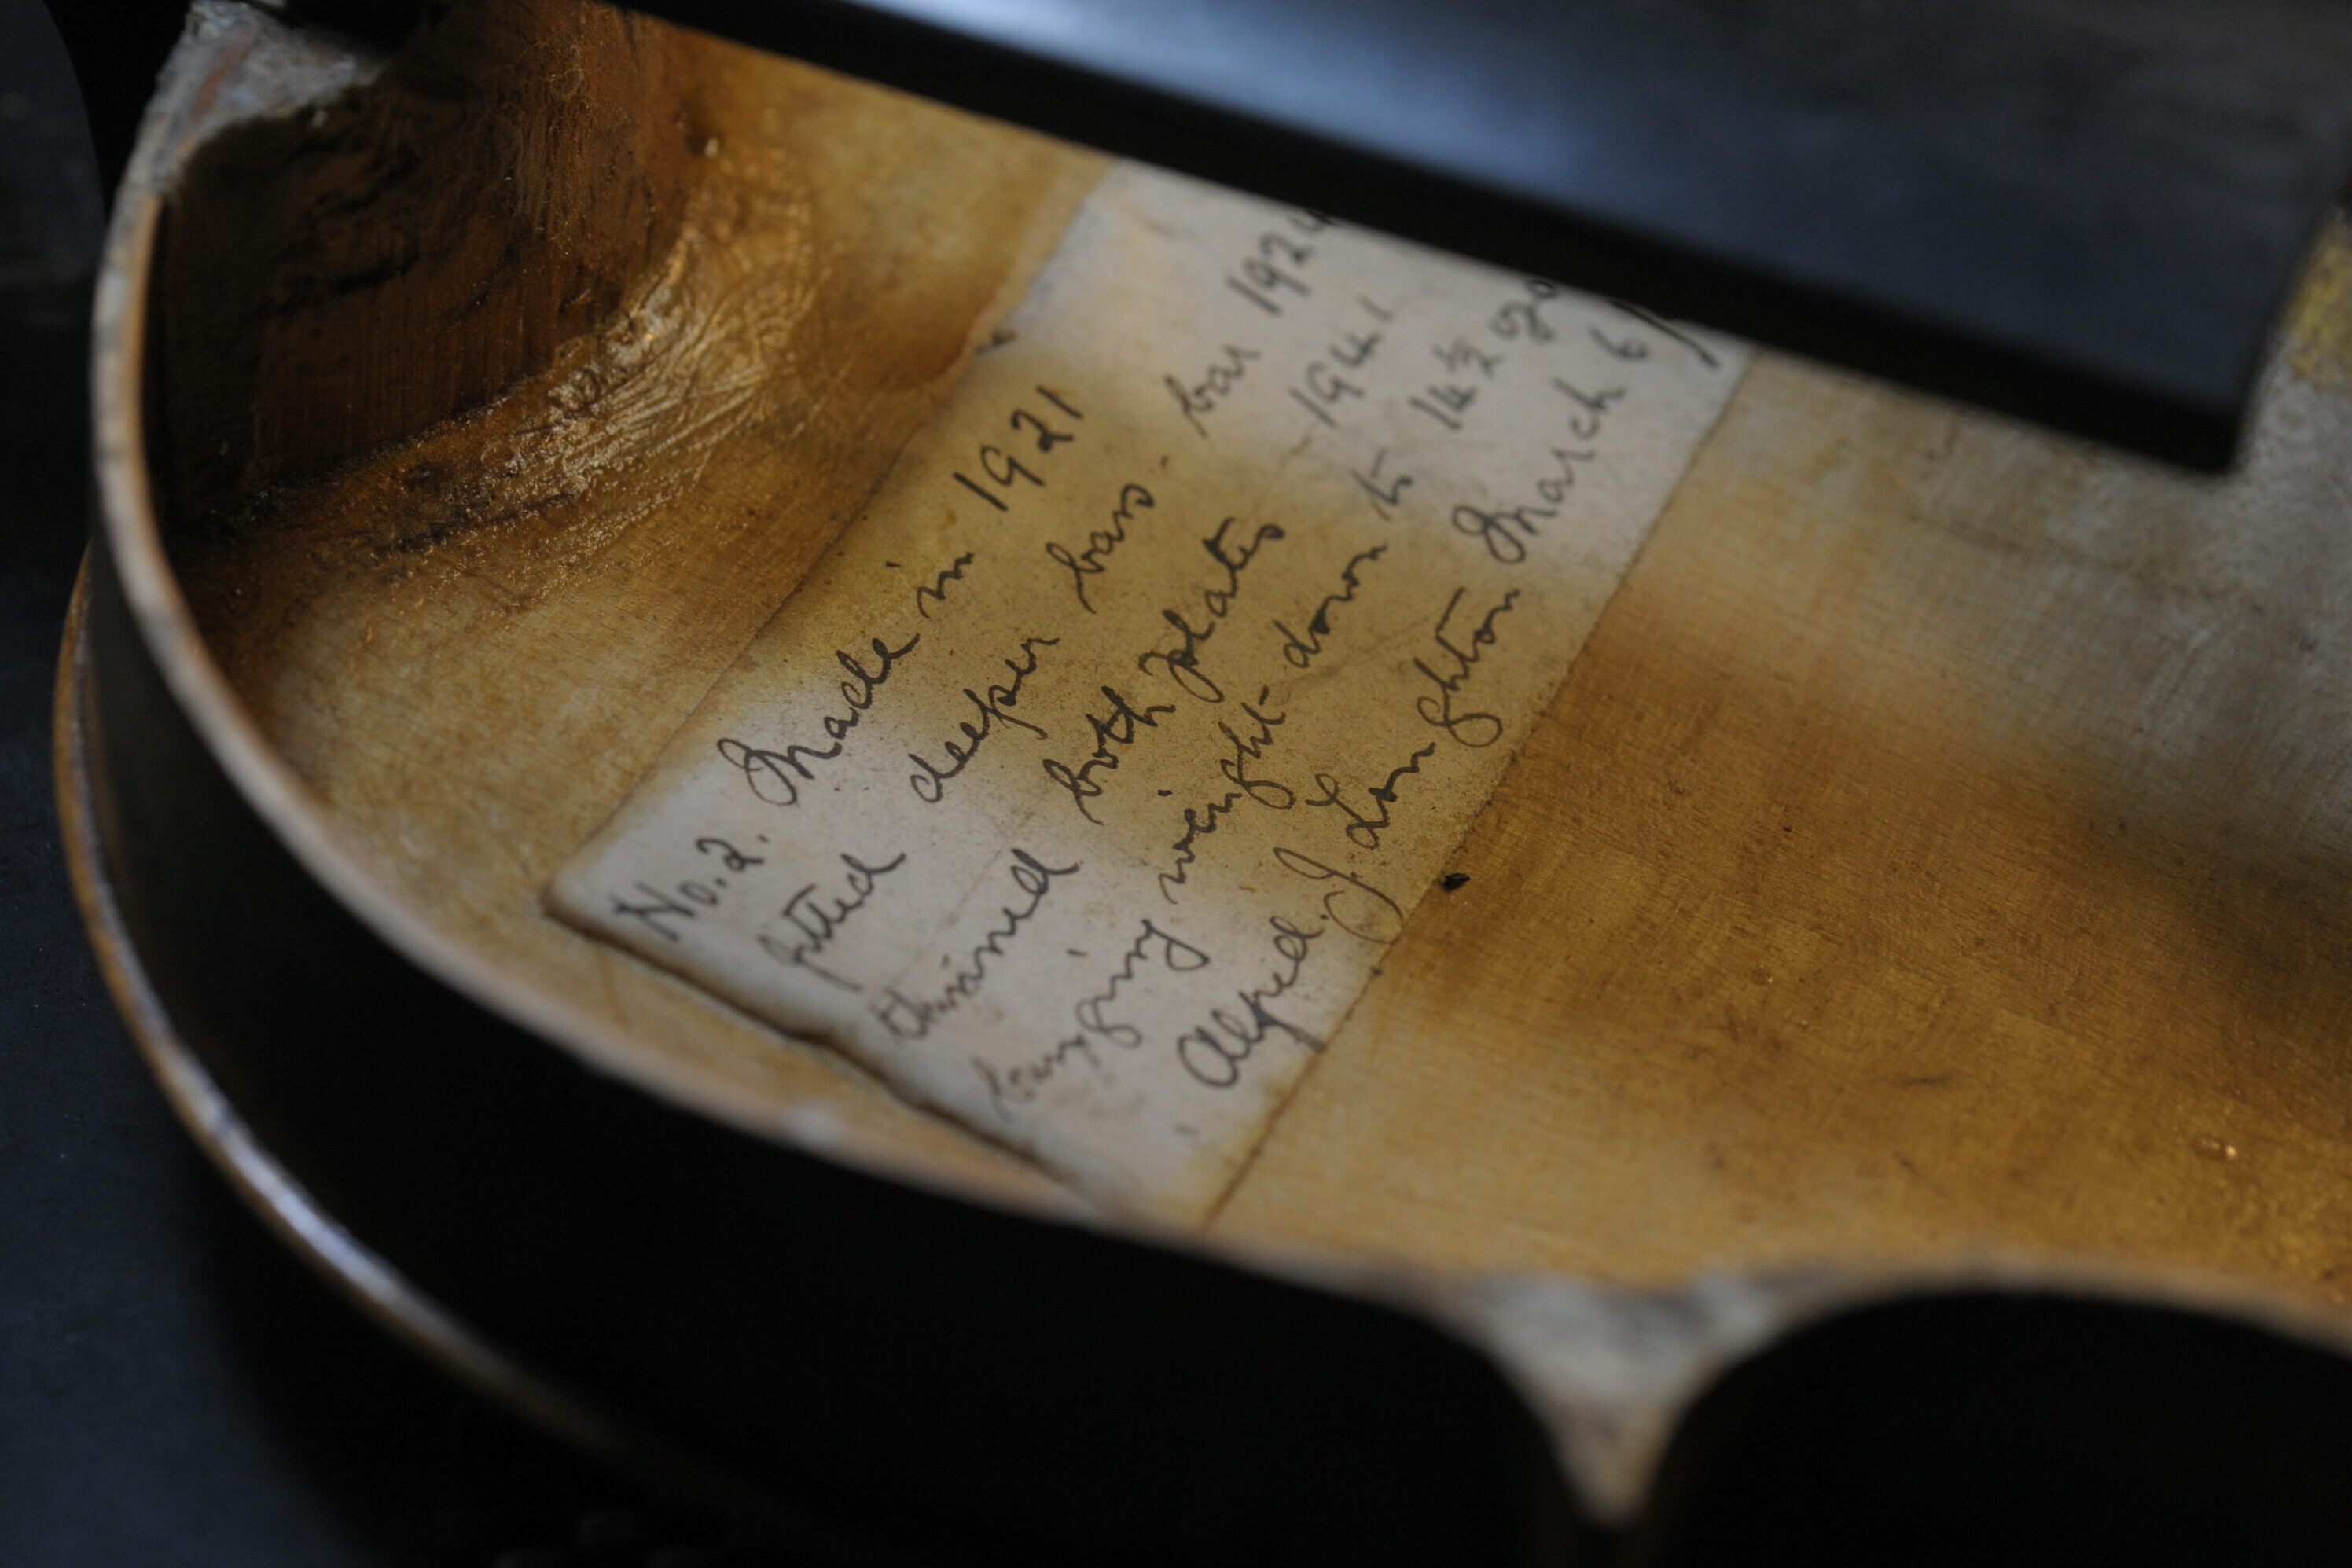 No. 2. Made in 1921
fitted deeper bass - bar 1924
thinned both plates 1941
bringing weight down to 14½ ozs
Alfred J. Longhton March 6/